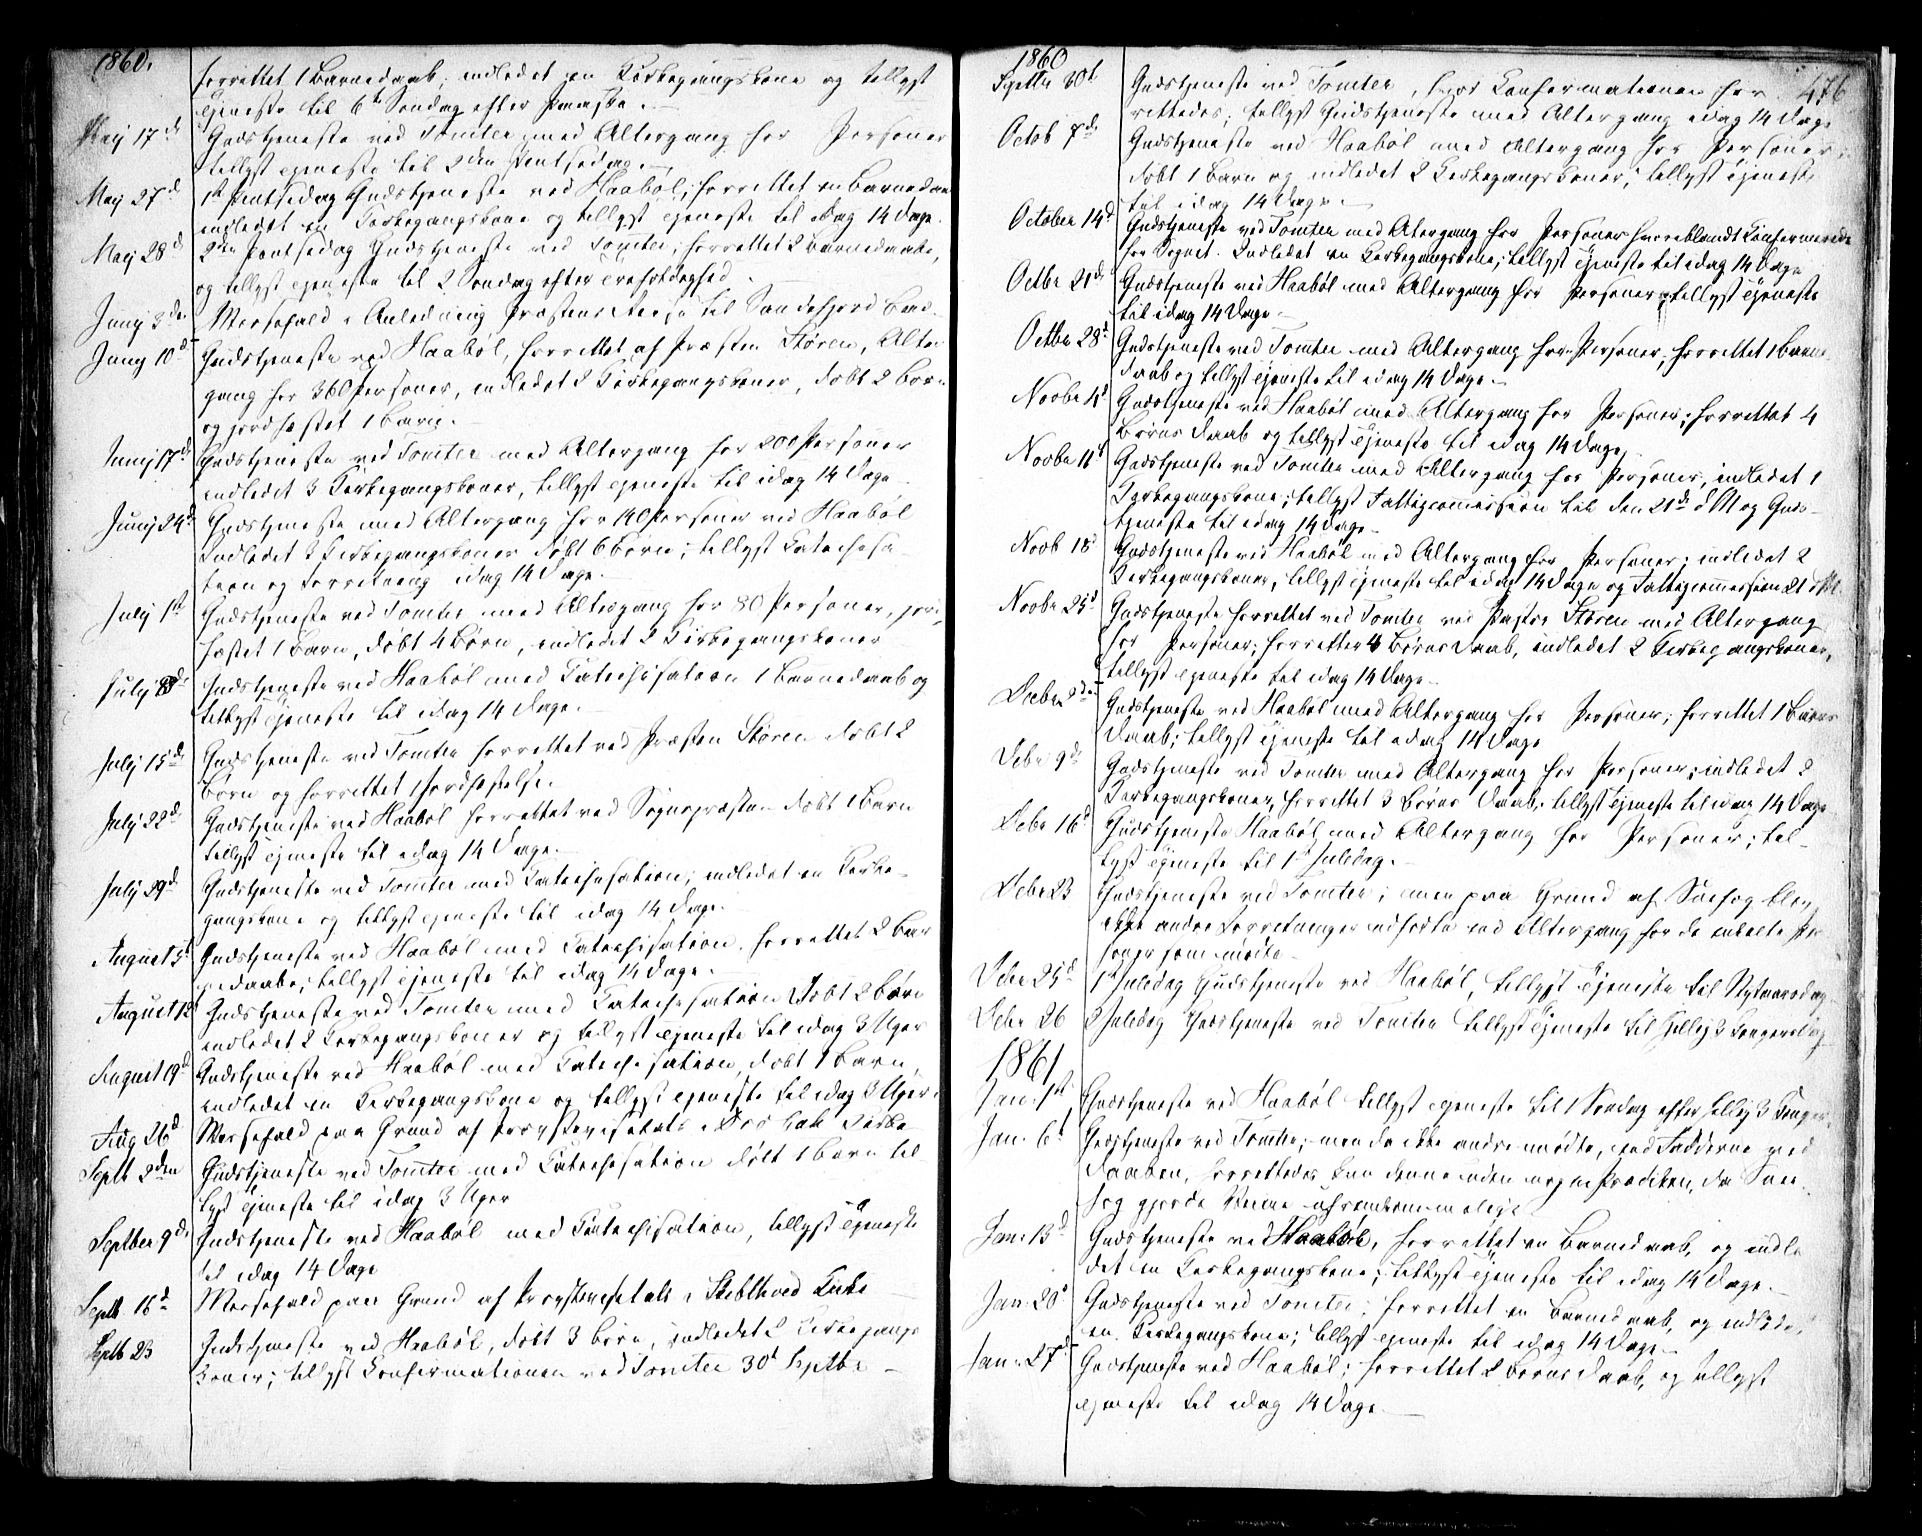 1860.
forrettet 1 Barnedaab, indledet en Kirkegangskone og tillyst
Tjeneste til 6te Søndag efter Paaske.
Maij 17de Gudstjeneste ved Tomter med Altergang for Personer
tillyst Tjeneste til 2den Pintsedag.
Maij 27d 1ste Pintsedag Gudstjeneste ved Haabøl, forrettet en Barnedaab
indledet en Kirkegangskone og tillyst Tjeneste til idag 14 Dage.
Maij 28d 2den Pintsedag Gudstjeneste ved Tomter, forrettet 2 Barnedaabe,
og tillyst Tjeneste til 2 Søndag efter Trefoldighed.
Junij 3die Messefald i Anledning Præstens Reise til Sandefjord Bad.
Junij 10d Gudstjeneste ved Haabøl, forrettet af Præsten Støren, Alter
gang for 360 Personer, indledet 2 Kirkegangskoner, døbt 2 Børn
og jordfæstet 1 Barn.
Junij 17de Gudstjeneste ved Tomter med Altergang for 200 Personer
indledet 3 Kirkegangskoner, tillyst Tjeneste til idag 14 Dage
Junij 24d Gudstjeneste med Altergang for 140 Personer ved Haabøl
Indledet 2 Kirkegangskoner døbt 6 Børn; tillyst Catechisa
tion og Forretning idag 14 Dage.
Julij 1st Gudstjeneste ved Tomter med Altergang for 80 Personer, jord
fæstet 1 Barn, døbt 4 Børn, indledet 2 Kirkegangskoner
Julij 8de Gudstjeneste ved Haabøl med Catechisation 1 Barnedaab og
tillyst Tjeneste til idag 14 Dage.
Julij 15de Gudstjeneste ved Tomter forrettet ved Præsten Støren døbt 2
Børn og forrettet 1 Jordfæstelse.
Julij 22d Gudstjeneste ved Haabøl forrettet ved Sognepræsten døbt 1 Barn
tillyst Tjeneste til idag 14 Dage.
Julij 29d Gudstjeneste ved Tomter med Catechisation; indledet en Kirke-
gangskone og tillyst Tjeneste til idag 14 Dage.
August 5t Gudstjeneste ved Haabøl med Catechisation. forrettet 2 Bar
nedaabe; tillyst Tjeneste til idag 14 Dage.
August 12 Gudstjeneste ved Tomter med Catechisation Døbt 2 Børn
indledet 2 Kirkegangskoner og tillyst Tjeneste til idag 3 Uger
August 19d Gudstjeneste ved Haabøl med Catechisation, døbt 1 Barn,
indledet en Kirkegangskone og tillyst Tjeneste til idag 3 Uger
Aug 26d Messefald paa Grund af Provstevisitats i Kirke
Septb 2den Gudstjeneste ved Tomter med Catechisation døbt 1 Barn til-
lyst Tjeneste til idag 3 Uger
Septber 9de Gudstjeneste ved Haabøl med Catechisation, tillyst Tjeneste
til idag 14 Dage
Septb 16d Messefald paa Grund af Provstevisitats i Skibthved Kirke
Septb 23 Gudstjeneste ved Haabøl, døbt 3 Børn, indledet 2 Kirkegangs
koner; tillyst Confirmationen ved Tomter 30t Septbr
476
1860
Septbr 30t Gudstjeneste ved Tomter, hvor Confirmationen for
rettedes; tillyst Gudstjeneste med Altergang idag 14 Dage
Octob 7d Gudstjeneste ved Haabøl med Altergang for Personer
døbt 1 Barn og indledet 2 Kirkegangskoner, tillyst Tjeneste
til idag 14 Dage.
October 14d Gudstjeneste ved Tomter med Altergang for Personer hvoreblandt Confirmerede
for Sognet. Indledet en Kirkegangskone; tillyst Tjeneste til idag 14 Dage
Octbr 21d Gudstjeneste ved Haabøl med Altergang for Personer, tillyst Tjeneste
til idag 14 Dage.
Octbr 28d Gudstjeneste ved Tomter med Altergang for Personer, forrettet 1 Barne
daab og tillyst Tjeneste til idag 14 Dage.
Novbr 4d Gudstjeneste ved Haabøl med Altergang for Personer, forrettet 4
Børns Daab og tillyst Tjeneste til idag 14 Dage,
Novbr 11d Gudstjeneste ved Tomter med Altergang for Personer, indledet 1
Kirkegangskone; tillyst Fattigcommission til den 21de d M og Guds-
tjeneste til idag 14 Dage.
Novb 18d Gudstjeneste ved Haabøl med Altergang for Personer; indledet 2
Kirkegangskoner, tillyst Tjeneste til idag 14 Dage og Fattigcommission 21 d M.
Novbr 25d Gudstjeneste forrettet ved Tomter ved Pastor Støren med Altergang
for Personer; forrettet 4 Børns Daab, indledet 2 Kirkegangskoner,
tillyst Tjeneste til idag 14 Dage.
Decbr 2den Gudstjeneste ved Haabøl med Altergang for Personer; forrettet 1 Børns
Daab; tillyst Tjeneste til idag 14 Dage
Debr 9de Gudstjeneste ved Tomter med Altergang for Personer; indledet 2
Kirkegangskoner, forrettet 3 Børns Daab, tillyst Tjeneste til idag 14 Dage
Debr 16d Gudstjeneste Haabøl med Altergang for Personer; til-
lyst Tjeneste til 1ste Juledag.
Debr 23 Gudstjeneste ved Tomter; men paa Grund af Sneefog blev
ikke andre Forretninger udførte end Altergang for de enkelte Per
soner som mødte.
Debr 25d 1ste Juledag Gudstjeneste ved Haabøl, tillyst Tjeneste til Nytaarsdag
Debr 26 2 Juledag Gudstjeneste ved Tomter tillyst Tjeneste til Hellig 3 Kongersdag
1861
Jan. 1ste Gudstjeneste ved Haabøl tillyst Tjeneste til 1 Søndag efter Hellig 3 Konger.
Jan. 6t Gudstjeneste ved Tomter, men da ikke andre mødte, end Fadderne ved
Daaben, forrettedes kun denne uden nogen Prædiken, da Snee-
fog gjorde Veiene ufremkommelige
Jan. 13d Gudstjeneste ved Haabøl, forrettet en Barnedaab, og indle
det en Kirkegangskone; tillyst Tjeneste til idag 14 Dage.
Jan. 20d Gudstjeneste ved Tomter; forrettet en Barnedaab, og indledet
en Kirkegangskone; tillyst Tjeneste til idag 14 Dage.
Jan. 27d Gudstjeneste ved Haabøl; forrettet 2 Børns Daab, og tillyst
Tjeneste til idag 14 Dage.